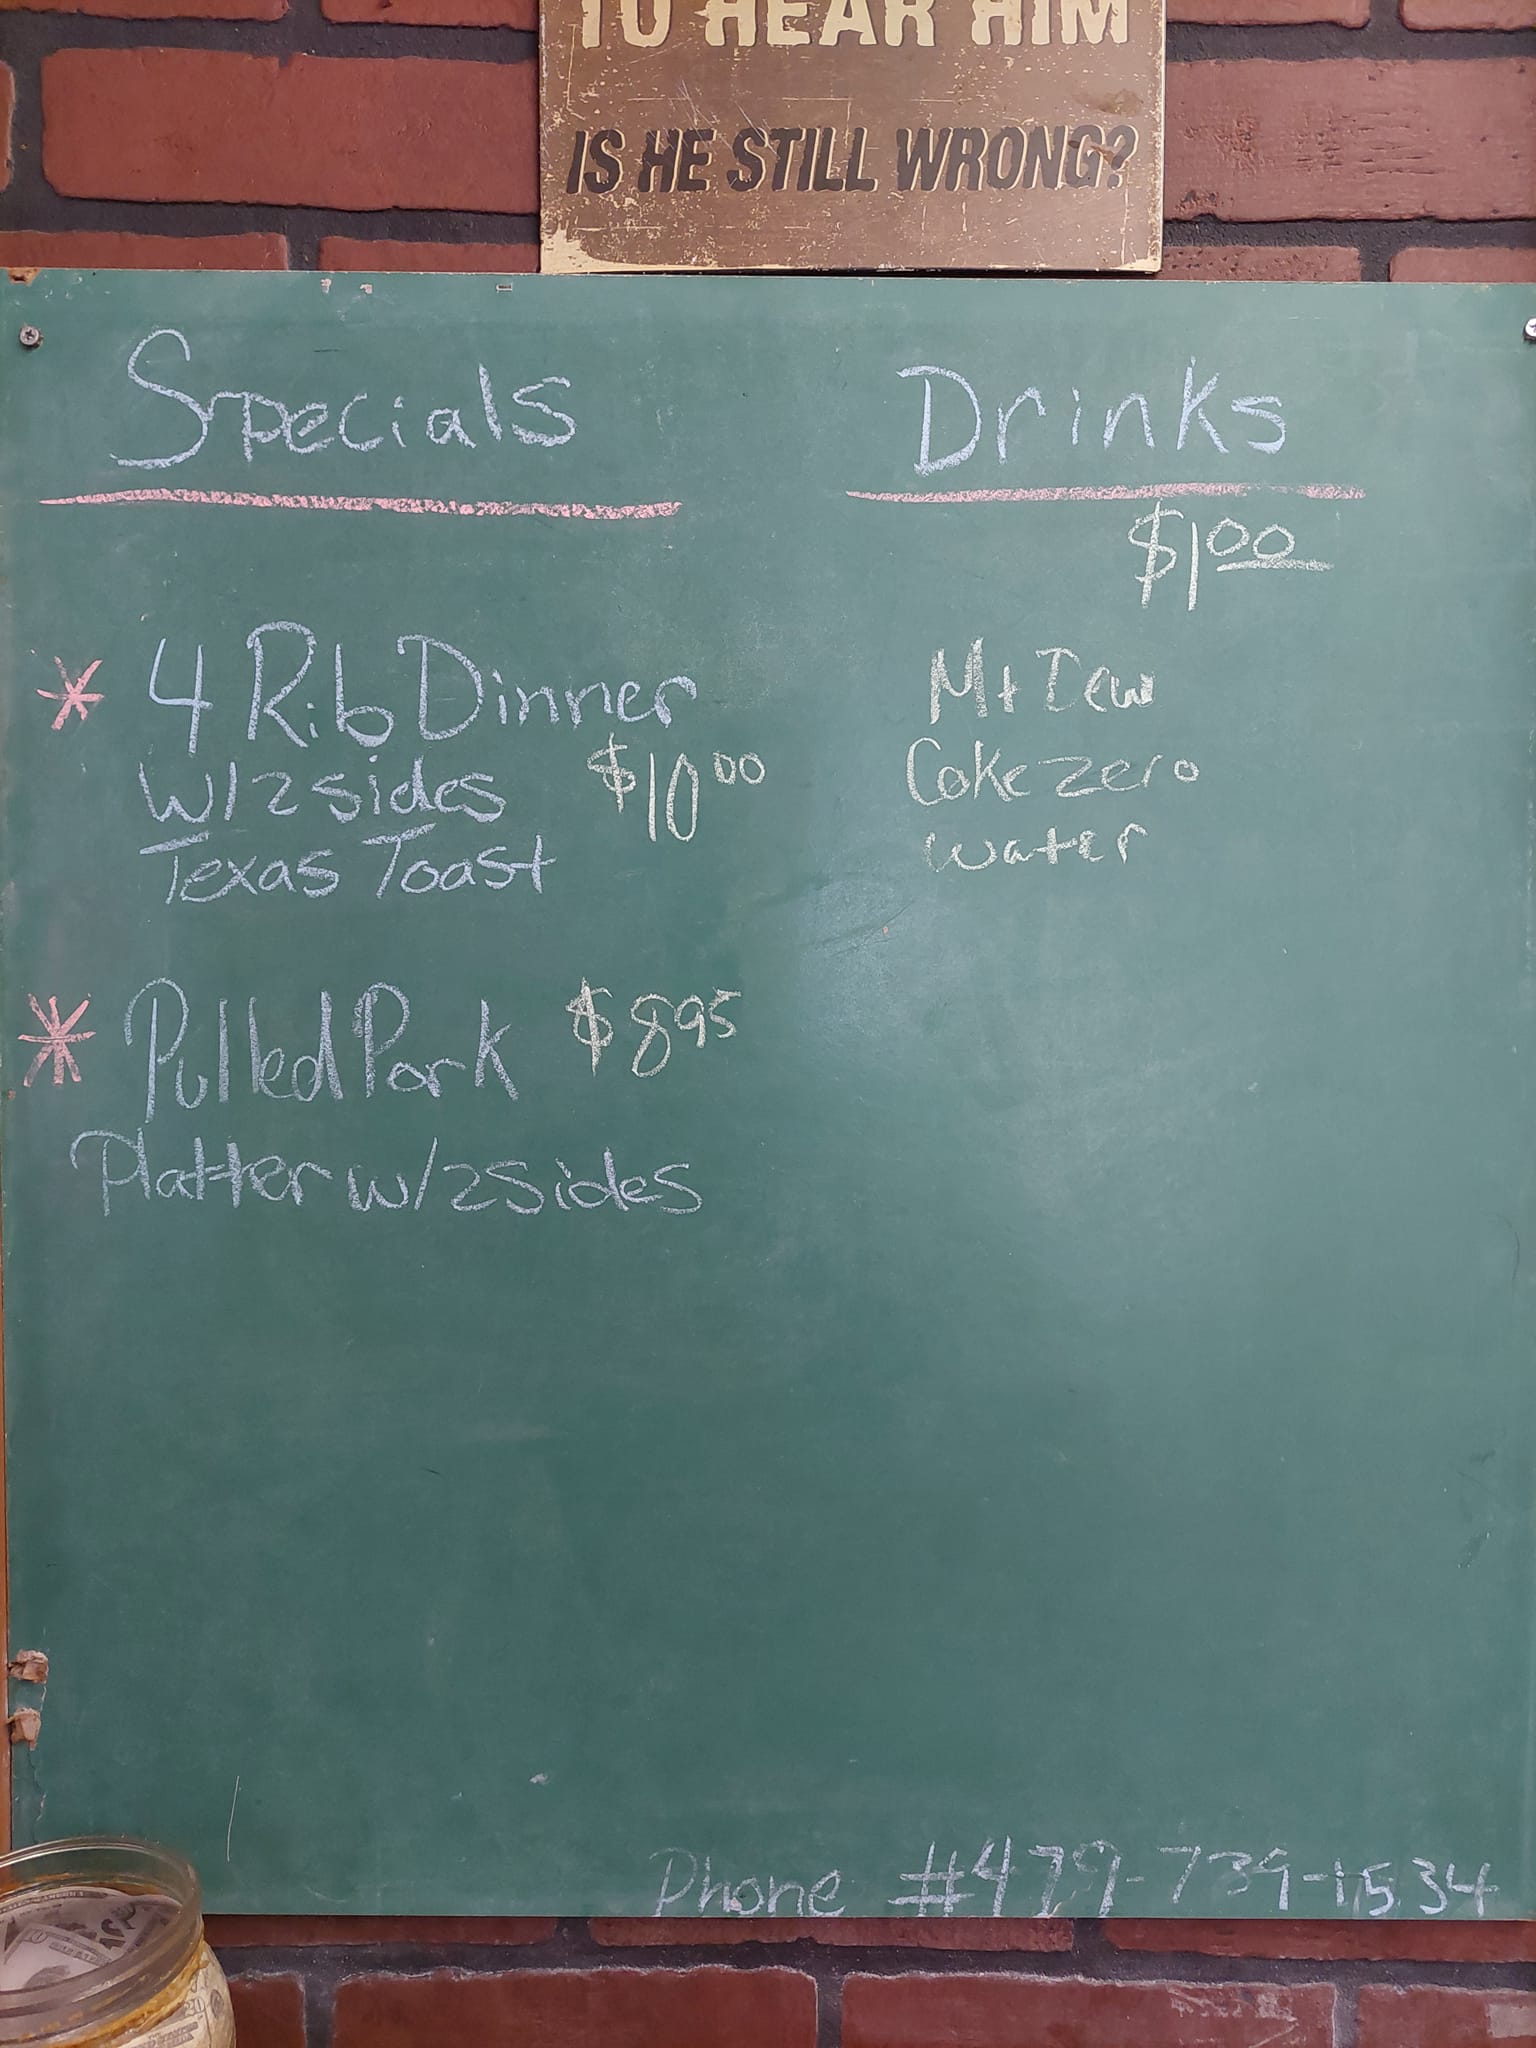 TO HEAR HIM
IS HE STILL WRONG?
Specials
* 4 Rib Dinner
W/2 sides $10.00
Texas Toast
* Pulled Pork $8.95
Platter w/2 sides
Drinks
$1.00
Mt Dew
Coke zero
water
Phone #479-739-1534